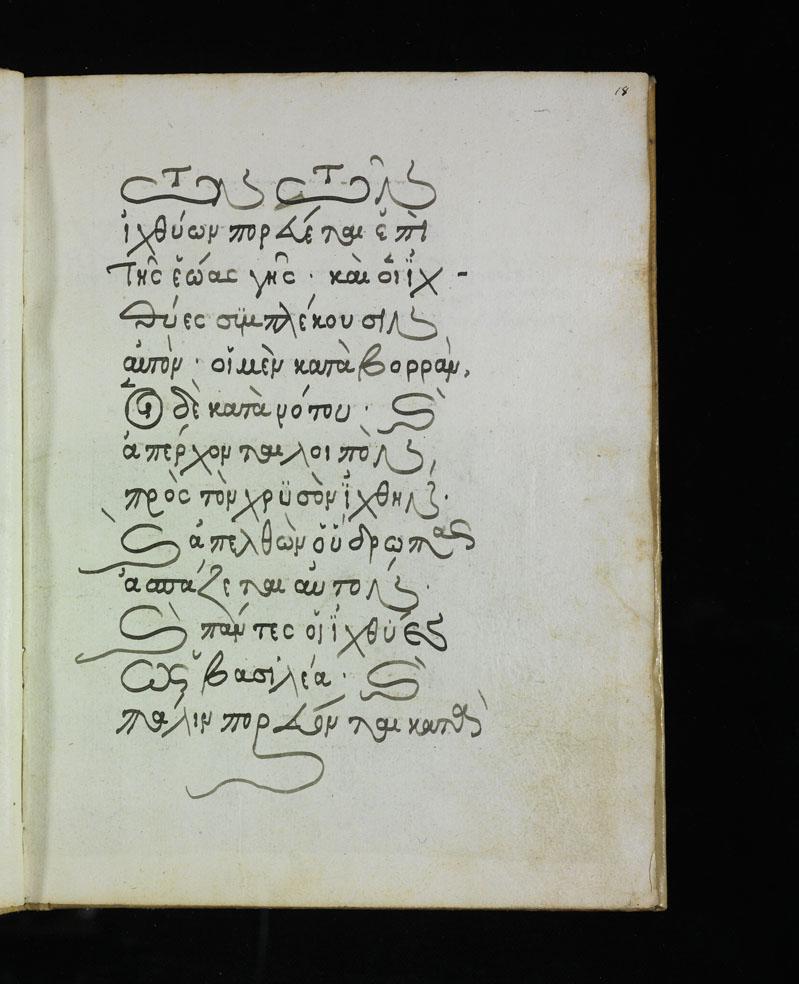 ἰχθύων πορεύεται ἐπὶ
τῆς ἑώας γῆς · καὶ οἱ ἰχ-
θύες σϊμπλέκουσιν
αὐτὸν · οἱ μὲν κατὰ βορρὰν,
οἱ δὲ κατὰ νότου · καὶ
ἀπέρχονται λοιπὸν,
πρὸς τὸν χρϋσὸν ἰχθην ·
καὶ ἀπελθὼν ὁ ὕδρωπας
ἀσπάζεται αὐτον ·
καὶ πάντες οἱ ἰχθύες
ὡς βασιλέα · καὶ
πάλιν πορεύονται κατὰ
18